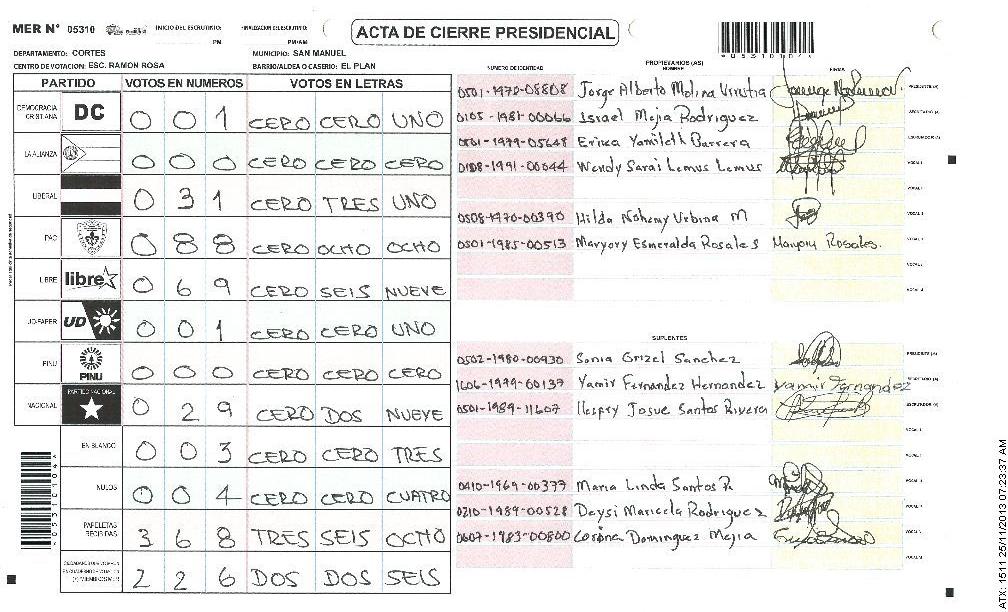 MER N° 05310 INICIO DEL ESCRUTINIO: FINALIZACION DEL ESCRUTINIO: ACTA DE CIERRE PRESIDENCIAL
PM PM/AM
DEPARTAMENTO: CORTES MUNICIPIO: SAN MANUEL
CENTRO DE VOTACION: ESC. RAMON ROSA BARRIO/ALDEA O CASERIO: EL PLAN
PARTIDO VOTOS EN NUMEROS VOTOS EN LETRAS
DEMOCRACIA CRISTIANA DC 0 0 1 CERO CERO UNO
LA ALIANZA 0 0 0 CERO CERO CERO
LIBERAL 0 3 1 CERO TRES UNO
PAC 0 8 8 CERO OCHO OCHO
LIBRE libre 0 6 9 CERO SEIS NUEVE
UD-FAPER UD 0 0 1 CERO CERO UNO
PINU PINU 0 0 0 CERO CERO CERO
NACIONAL PARTIDO NACIONAL 0 2 9 CERO DOS NUEVE
EN BLANCO 0 0 3 CERO CERO TRES
NULOS 0 0 4 CERO CERO CUATRO
PAPELETAS RECIBIDAS 3 6 8 TRES SEIS OCHO
2 2 6 DOS DOS SEIS
NUMERO DE IDENTIDAD PROPIETARIOS (AS) NOMBRE FIRMA
0501-1970-08808 Jorge Alberto Molina Urrutia PRESIDENTE (A)
0105-1981-00066 Israel Mejia Rodriguez SECRETARIO (A)
0501-1979-05648 Erika Yamileth Barrera ESCRUTADOR (A)
0108-1991-00044 Wendy Sarai Lemus Lemus VOCAL 1
0508-1970-00390 Hilda Nohemy Urbina M VOCAL 3
0501-1985-00513 Maryory Esmeralda Rosales Maryory Rosales.
SUPLENTES
0502-1980-00930 Sonia Grizel Sanchez PRESIDENTE (A)
1606-1979-00137 Yamir Fernandez Hernandez Yamir Fernandez SECRETARIO (A)
0501-1989-11607 Josue Santos Rivera ESCRUTADOR (A)
0410-1969-00377 Maria Linda Santos R.
0210-1989-00528 Deysi Maricela Rodriguez
0607-1983-00800 Dominguez Mejia
ATX: 1511 25/11/2013 07:23:37 AM